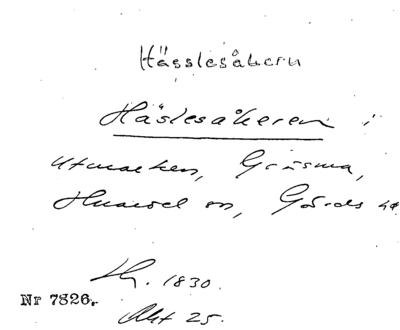 Hässlesåkern
Häslesåkeren i
utmarken, Gräsma,
Hunsel sn, Gärds hd
Lh. 1830.
Nr 7826.
Akt 25.